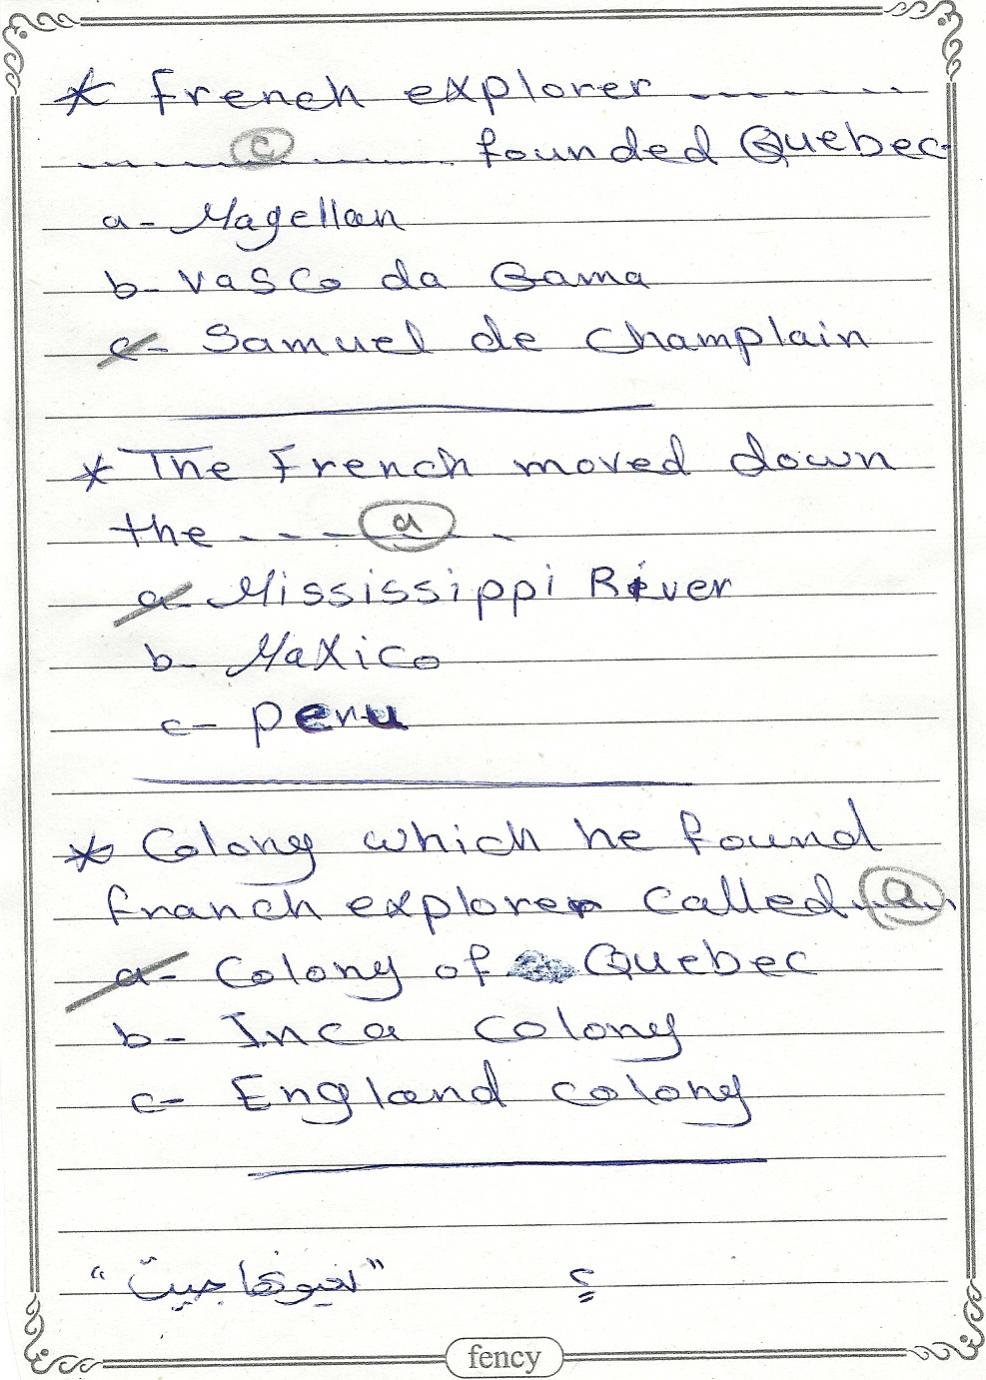 * French explorer ........
............ c ............ founded Quebec.
a- Magellan
b- Vasco da Gama
c- Samuel de Champlain
* The French moved down
the - - - a - -
a- Mississippi River
b- Maxico
c- peru
* Colony which he found
franch explorer called... a ...
a- Colony of Quebec
b- Inca colony
c- England colony
fency